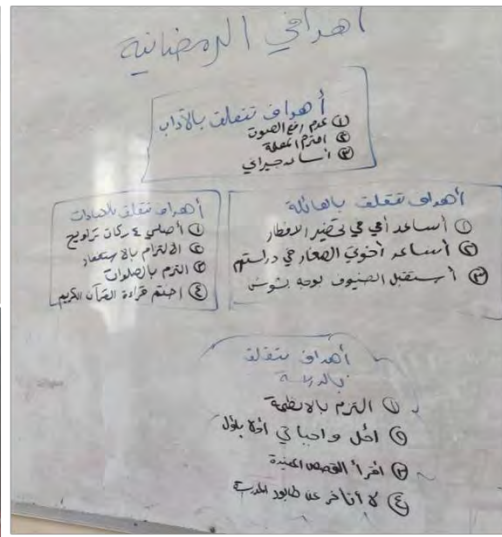 أهدافي الرمضانية
أهداف تتعلق بالآداب
① عدم رفع الصوت
② احترم المعلمة
③ أساعد جيراني
أهداف تتعلق بالعبادات
① أصلي ٤ ركعات تراويح
② الالتزام بالاستغفار
③ التزم بالصلوات
④ اختم قراءة القرآن الكريم
أهداف تتعلق بالعائلة
① أساعد أمي في تحضير الافطار
② أساعد أخوتي الصغار في دراستهم
③ أستقبل الضيوف بوجه بشوش
أهداف تتعلق
بالدراسة
① التزم بالانظمة
② احل واجباتي أولا بأول
③ اقرأ القصص المفيدة
④ لا أتأخر عن طابور المدرسة